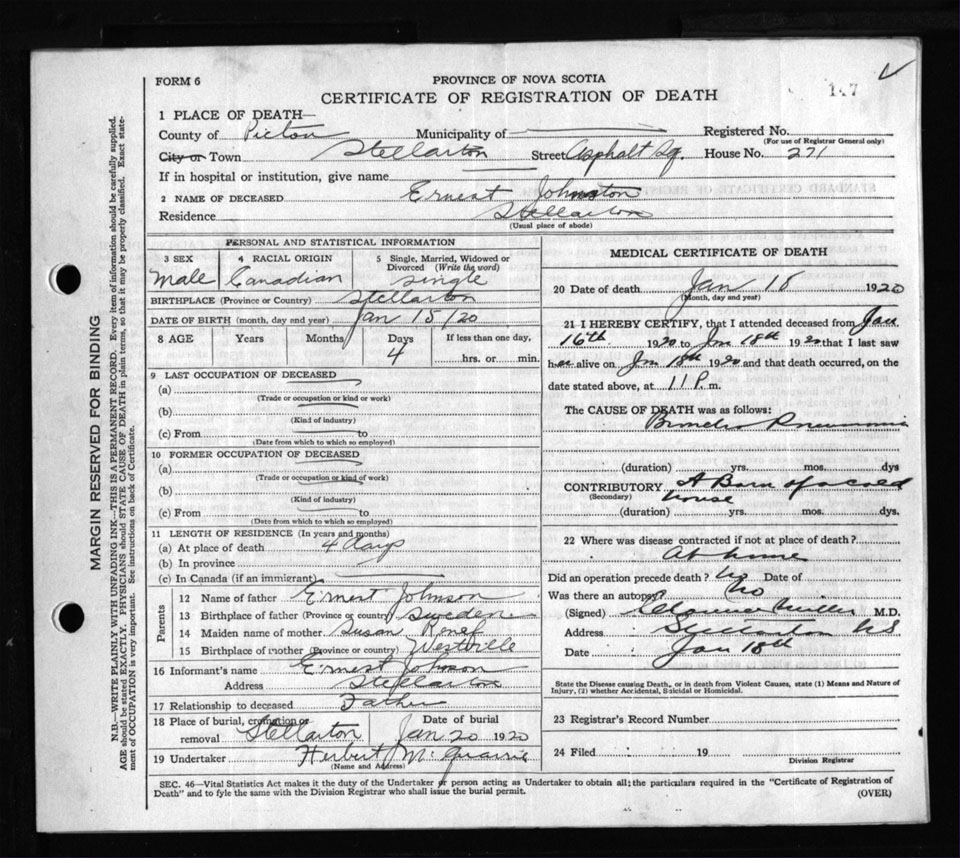 147
FORM 6
PROVINCE OF NOVA SCOTIA
CERTIFICATE OF REGISTRATION OF DEATH
1 PLACE OF DEATH—
County of Pictou Municipality of Registered No.
(For use of Registrar General only)
City or Town Stellarton Street Asphalt Sq. House No. 271
If in hospital or institution, give name
2 NAME OF DECEASED Ernest Johnston
Residence Stellarton
(Usual place of abode)
PERSONAL AND STATISTICAL INFORMATION
3 SEX 4 RACIAL ORIGIN 5 Single, Married, Widowed or
Divorced (Write the word)
Male Canadian Single
BIRTHPLACE (Province or Country) Stellarton
DATE OF BIRTH (month, day and year) Jan 15/20
8 AGE Years Months Days If less than one day,
4 hrs. or min.
9 LAST OCCUPATION OF DECEASED
(a)
(Trade or occupation or kind or work)
(b)
(Kind of industry)
(c) From to
(Date from which to which so employed)
10 FORMER OCCUPATION OF DECEASED
(a)
(Trade or occupation or kind of work)
(b)
(Kind of industry)
(c) From to
(Date from which to which so employed)
11 LENGTH OF RESIDENCE (In years and months)
(a) At place of death 4 days
(b) In province
(c) In Canada (if an immigrant)
Parents
12 Name of father Ernest Johnson
13 Birthplace of father (Province or country) Sweden
14 Maiden name of mother Susan
15 Birthplace of mother (Province or country) Westville
16 Informant's name Ernest Johnson
Address Stellarton
17 Relationship to deceased Father
18 Place of burial, cremation or Date of burial
removal Stellarton Jan 20 1920
19 Undertaker Herbert McQuarrie
(Name and Address)
MEDICAL CERTIFICATE OF DEATH
20 Date of death Jan 18 1920
(Month, day and year)
21 I HEREBY CERTIFY, that I attended deceased from Jan
16th 1920 to Jan 18th 1920 that I last saw
h alive on Jan 18th 1920 and that death occurred, on the
date stated above, at 11 P. m.
The CAUSE OF DEATH was as follows:
Broncho Pneumonia
(duration) yrs. mos. dys
CONTRIBUTORY A Born of a cold
(Secondary) house
(duration) yrs. mos. dys.
22 Where was disease contracted if not at place of death?
At home
Did an operation precede death? No Date of
Was there an autopsy No
(Signed) Clarence Miller M.D.
Address Stellarton NS
Date Jan 18th
State the Disease causing Death, or in death from Violent Causes, state (1) Means and Nature of
Injury, (2) whether Accidental, Suicidal or Homicidal.
23 Registrar's Record Number
24 Filed 19
Division Registrar
SEC. 46—Vital Statistics Act makes it the duty of the Undertaker or person acting as Undertaker to obtain all the particulars required in the "Certificate of Registration of
Death" and to fyle the same with the Division Registrar who shall issue the burial permit.
(OVER)
MARGIN RESERVED FOR BINDING
N.B.—WRITE PLAINLY WITH UNFADING INK—THIS IS A PERMANENT RECORD. Every item of information should be carefully supplied.
AGE should be stated EXACTLY. PHYSICIANS should STATE CAUSE OF DEATH in plain terms, so that it may be properly classified. Exact state-
ment of OCCUPATION is very important. See instructions on back of Certificate.